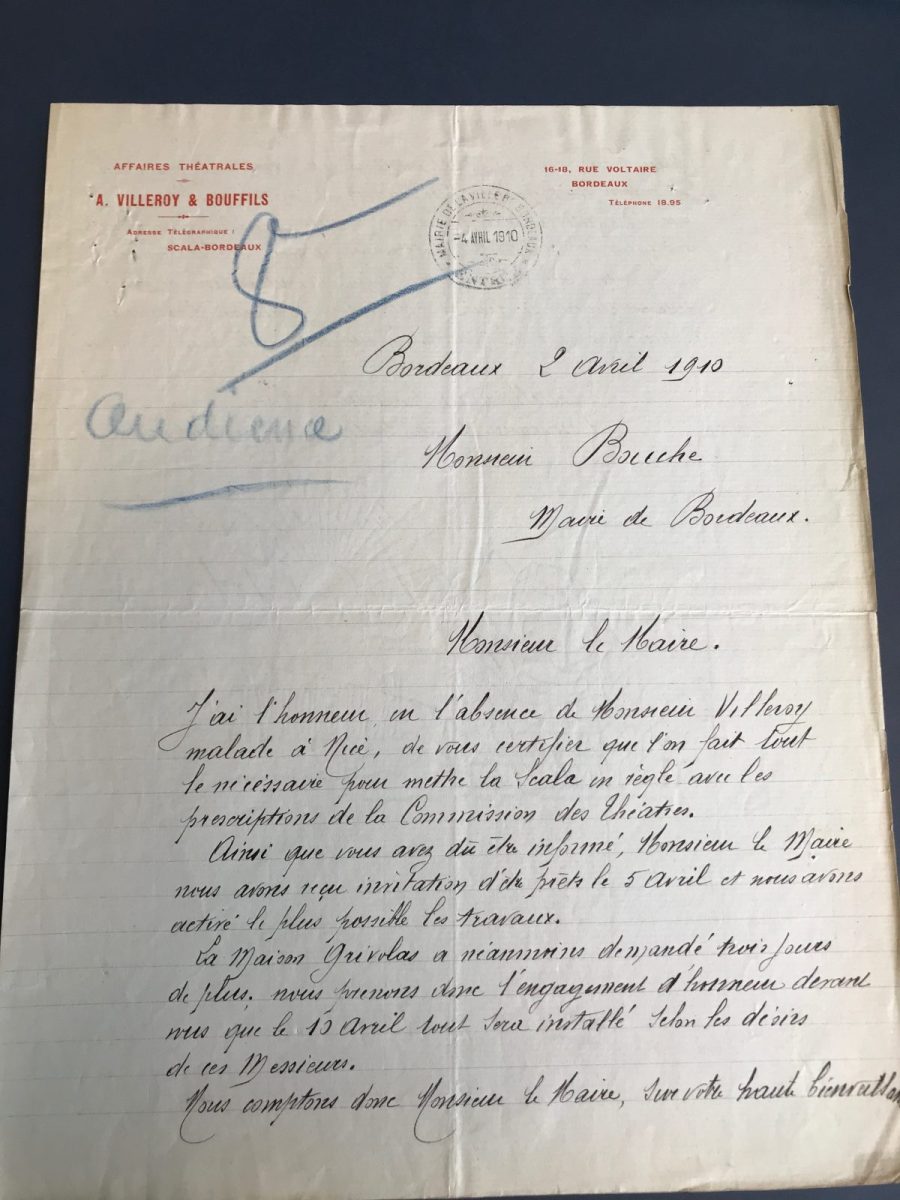 AFFAIRES THÉATRALES
A. VILLEROY & BOUFFILS
ADRESSE TÉLÉGRAPHIQUE :
SCALA-BORDEAUX
16-18, RUE VOLTAIRE
BORDEAUX
TÉLÉPHONE 18.95
MAIRIE DE LA VILLE DE BORDEAUX
-4 AVRIL 1910
8
Audience
Bordeaux 2 Avril 1910
Monsieur Bouche
Maire de Bordeaux.
Monsieur le Maire.
J'ai l'honneur, en l'absence de Monsieur Villeroy
malade à Nice, de vous certifier que l'on fait tout
le nécessaire pour mettre la Scala en règle avec les
prescriptions de la Commission des Théatres.
Ainsi que vous avez dû être informé, Monsieur le Maire
nous avons reçu invitation d'être prêts le 5 Avril et nous avons
activé le plus possible les travaux.
La Maison Grivolas a néanmoins demandé trois jours
de plus. nous prenons donc l'engagement d'honneur devant
vous que le 10 Avril tout sera installé selon les désirs
de ces Messieurs.
Nous comptons donc Monsieur le Maire, sur votre haute